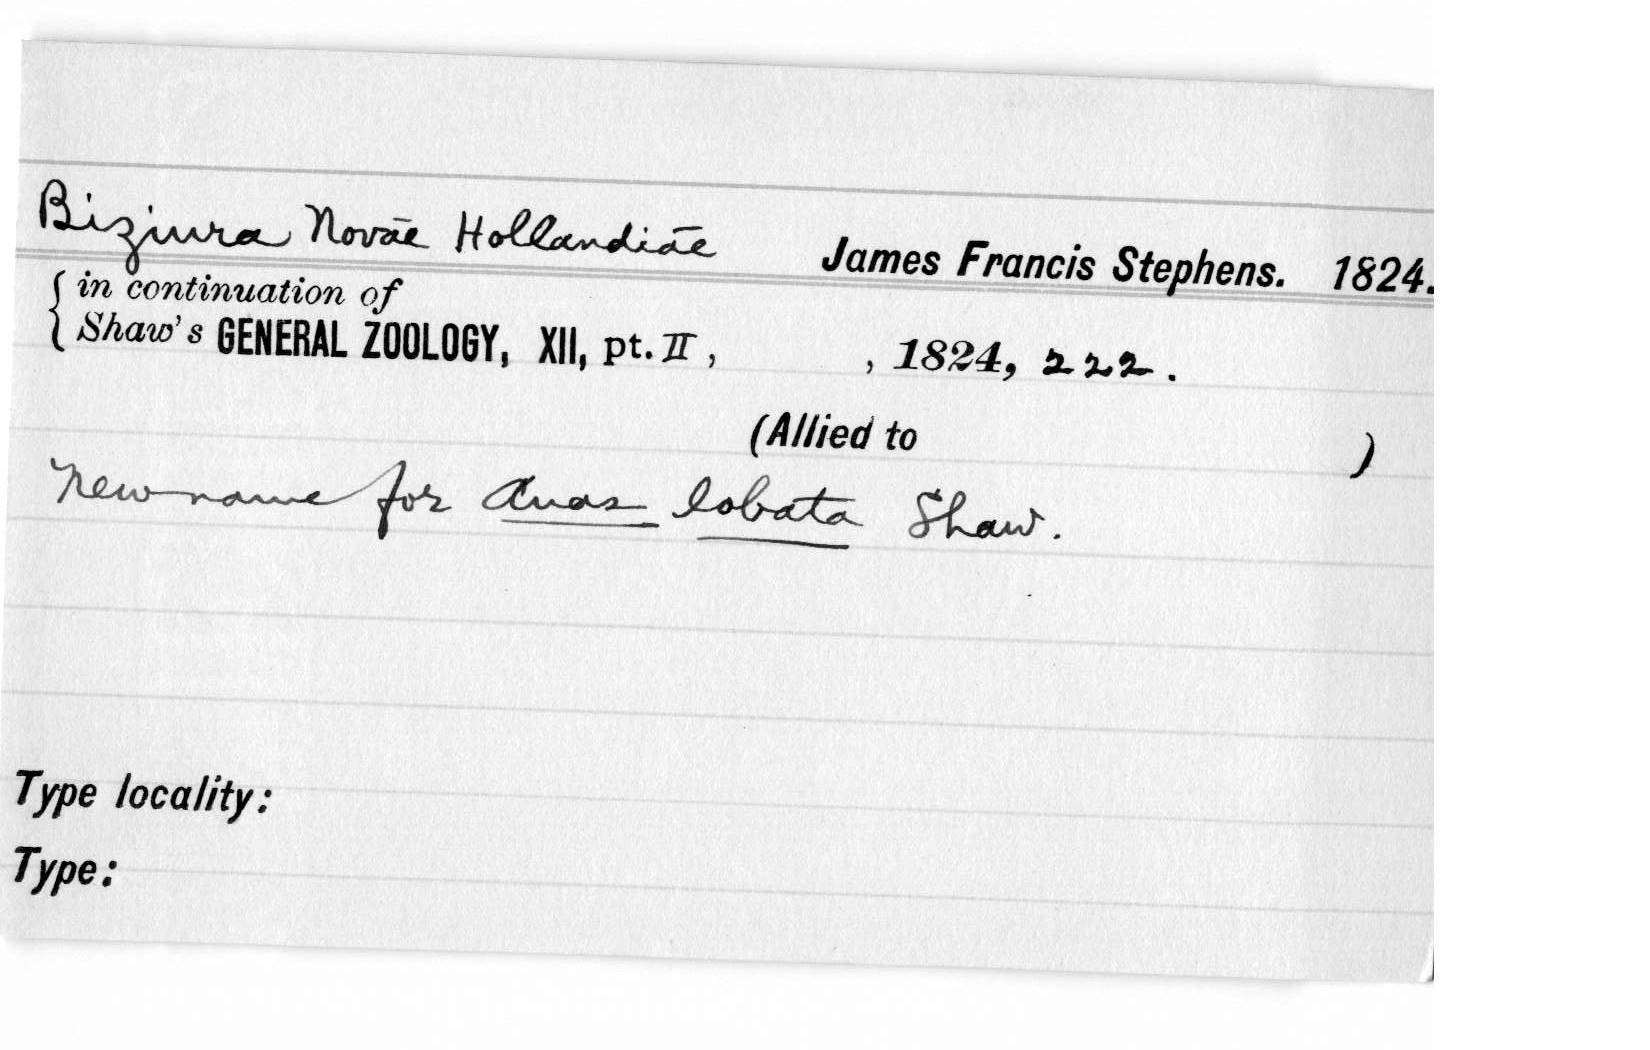 Biziura Novae Hollandiae James Francis Stephens. 1824.
in continuation of
Shaw's GENERAL ZOOLOGY, XII, pt. II, , 1824, 222.
(Allied to )
New name for Anas lobata Shaw.
Type locality:
Type: